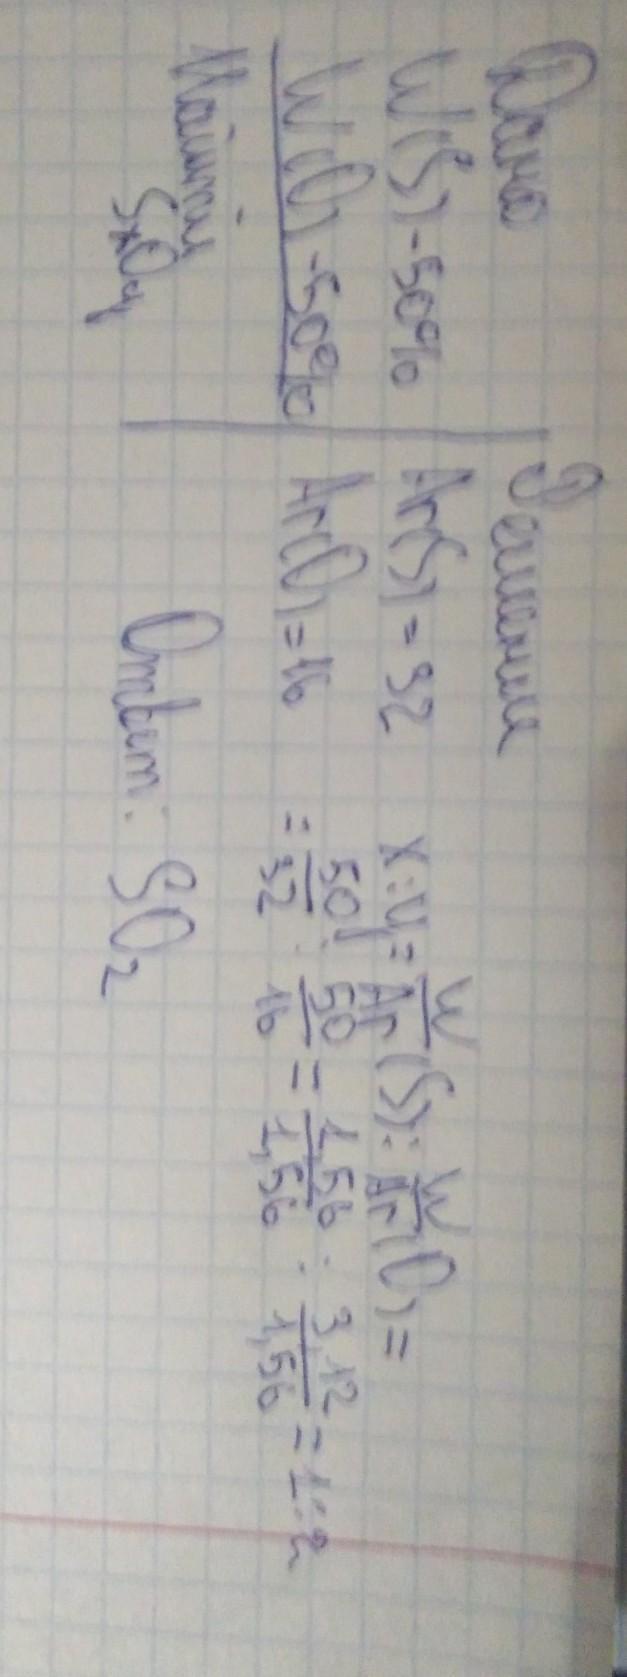 Дано
W(S)-50%
W(O)-50%
Найти
SxOy
Решение
Ar(S)=32
Ar(O)=16
x:y=W/Ar(S):W/Ar(O)=
=50/32:50/16=1,56/1,56:3,12/1,56=1:2
Ответ: SO2